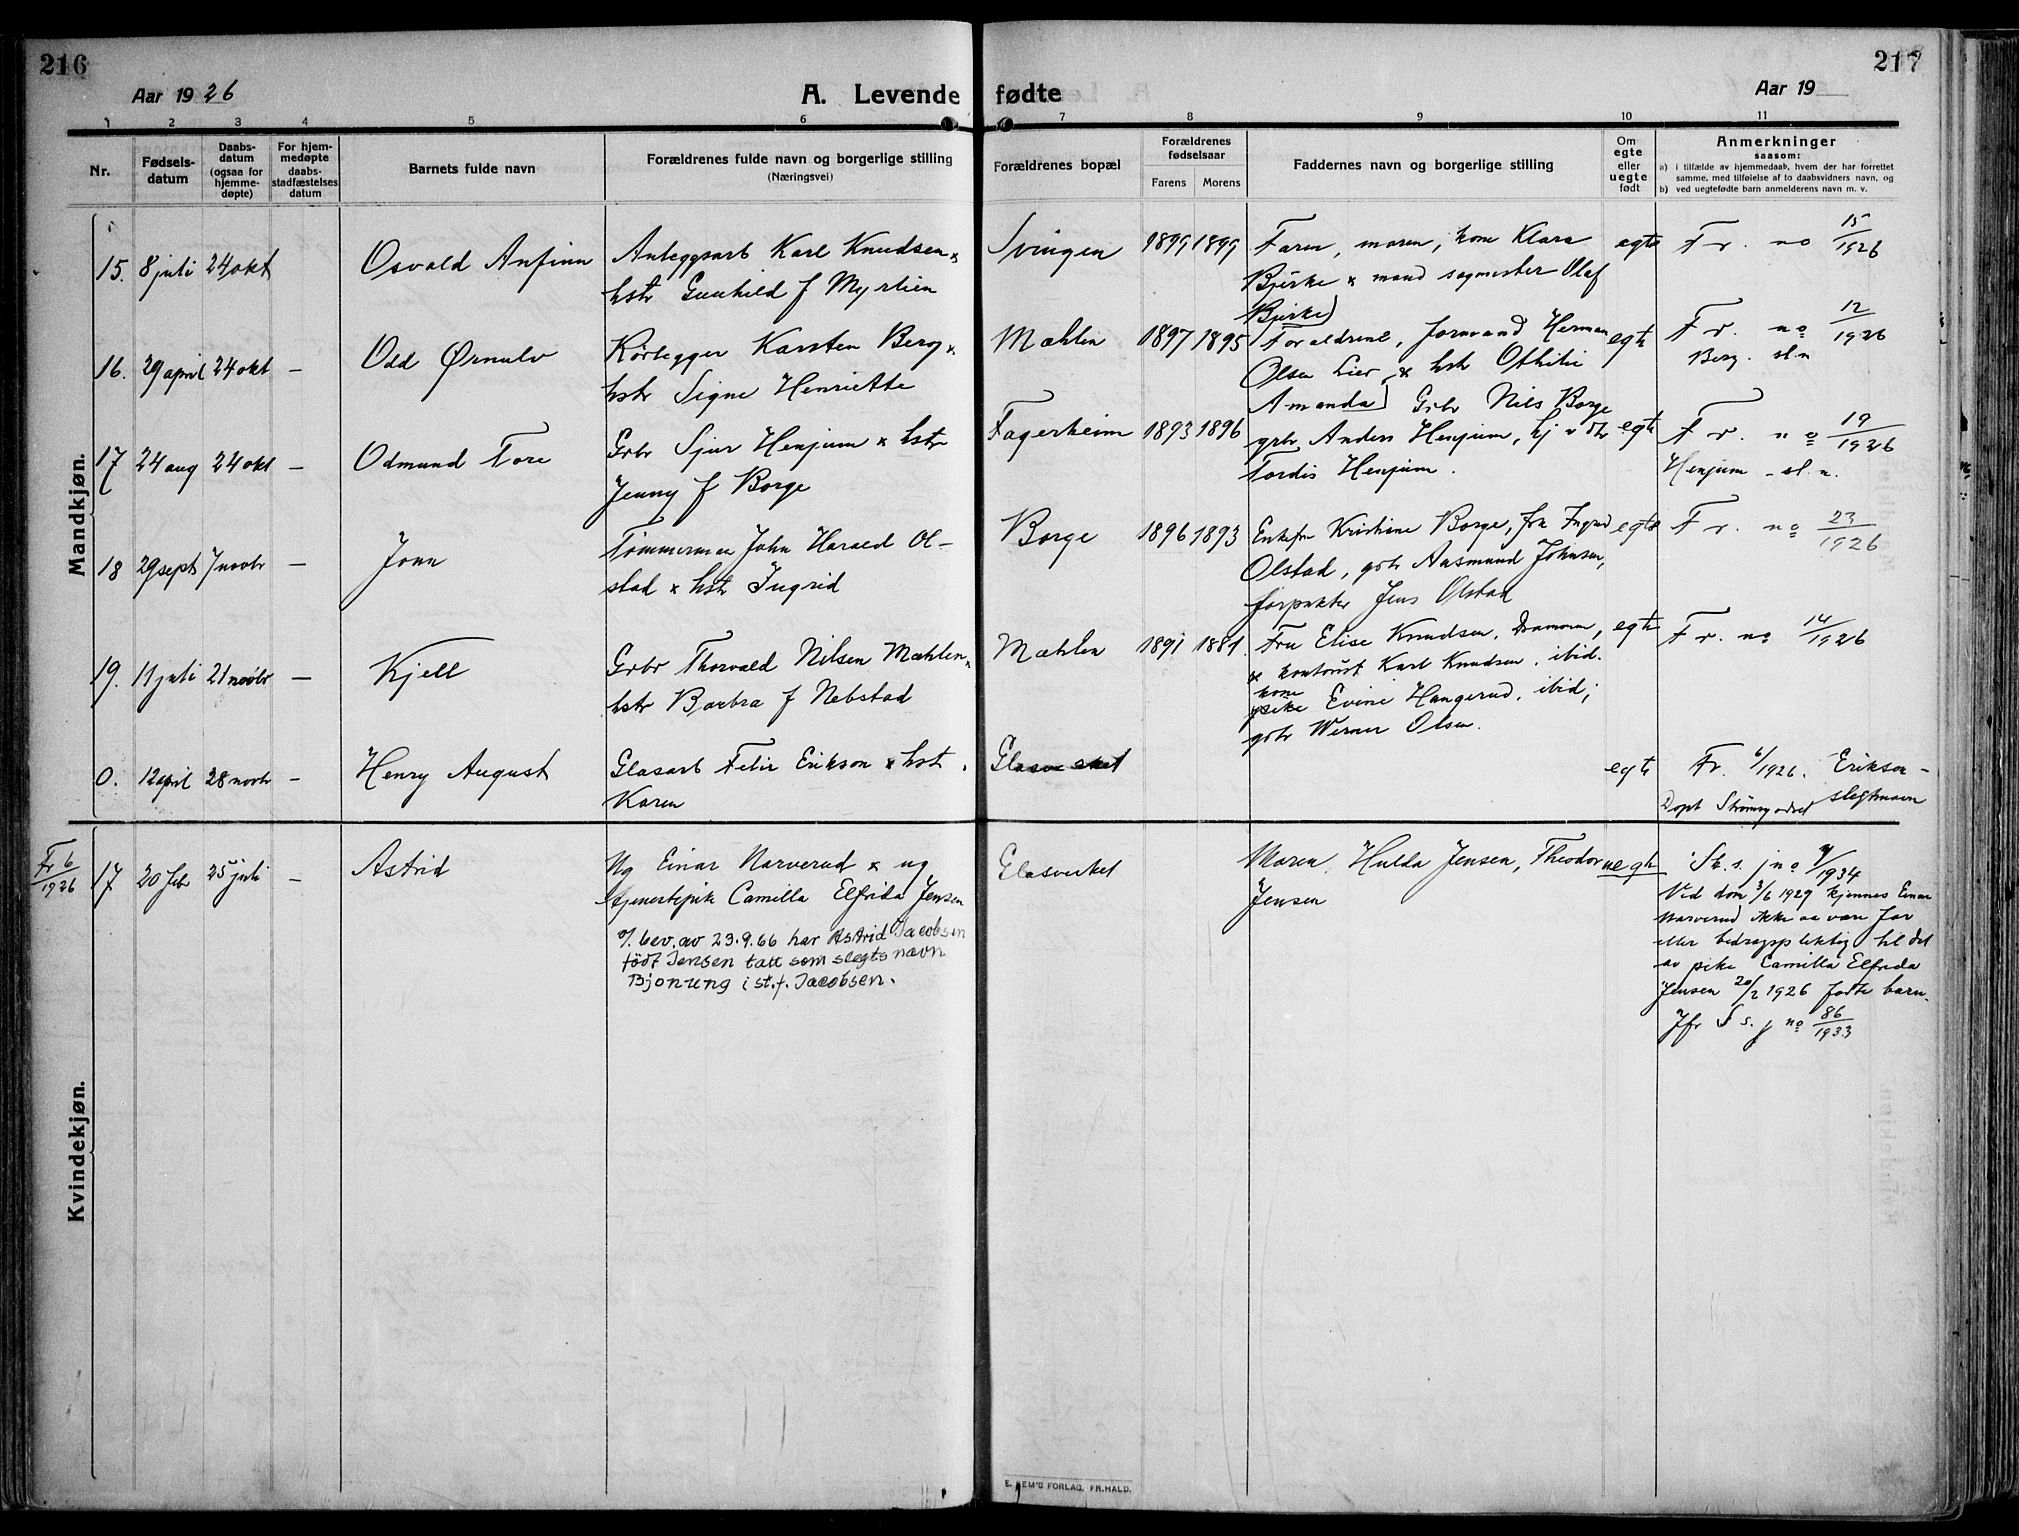 216
217
Aar 1926
A. Levende fødte
Aar 19
1 2 3 4 5 6 7 8 9 10 11
Nr.
Fødsels-
datum
Daabs-
datum
(ogsaa for
hjemme-
døpte)
For hjem-
medøpte
daabs-
stadfæstelses
datum
Barnets fulde navn
Forældrenes fulde navn og borgerlige stilling
(Næringsvei)
Forældrenes bopæl
Forældrenes
fødselsaar
Farens Morens
Faddernes navn og borgerlige stilling
Om
egte
eller
uegte
født
Anmerkninger
saasom:
a) i tilfælde av hjemmedaab, hvem der har forrettet
samme, med tilføielse af to daabsvidners navn, og
b) ved uegtefødte barn anmelderens navn m. v.
Mandkjøn.
15. 8 juli 24 okt Osvald Anfinn
Anleggsarb Karl Knudsen x
hstr Gunhild f Myrlien
Svingen 1899 1899
Faren, moren, kone Klara
Bjerke x mand sagmester Olaf
Bjerke
egte
Fr. no 15/1926
16. 29 april 24 okt – Odd Ørnulv
Rørlegger Karsten Berg x
hstr Signe Henriette
Mæhlen 1897 1895
Forældrene, formand Herman
Olsen Lier x hstr Othilie
Amanda Grbr Nils Borge
egte
Fr. no 12/1926
Berg. sl.n
17 24 aug 24 okt – Odmund Tore
Grbr Sjur Henjum x hstr
Jenny f Borge
Fagerheim 1893 1896
grbr Anders Henjum,
Tordis Henjum.
egte
Fr. no 19/1926
Henjum – sl. n.
18 29 sept 7 novbr – John
Tømmerman John Harald Ol-
stad x hstr Ingrid
Borge 1896 1893
Enkefru Kristine Borge, frk Ingrid
Olstad, gbr Aasmund Johnsen,
forpakter Jens Olstad
egte
Fr. no 23/1926
19. 11 juli 21 novbr – Kjell
Grbr Thorvald Nilsen Mæhlen x
hstr Barbra f Nebstad
Mæhlen 1891 1881
Fru Elise Knudsen, Drammen,
x kontorist Karl Knudsen, ibid.
kone
pike Evine Haugerud, ibid;
gbr Werner Olsen.
egte
Fr. no 14/1926
0. 12 april 28 novbr – Henry August
Glasarb Felix Erikson x hstr
Karen
Glasverket
egte
Fr. 6/1926. Erikson –
slegtsnavn
Døpt Strømsgodset
Kvindekjøn.
Fr 6/1926
17 20 febr 25 juli – Astrid
Ug Einar Narverud x ug
tjenestepike Camilla Elfrida Jensen
o/. bev. av 23.9.66 har Astrid Jacobsen
født Jensen tatt som slegtsnavn
Bjonung i st.f. Jacobsen.
Glasverket
Moren, Hulda Jensen, Theodor
Jensen
uegte
Sk. s. jno 4/1934
Ved dom 3/6 1929 kjennes Einar
Narverud ikke aa være far
eller bidragspliktig til det
av pike Camilla Elfrida
Jensen 20/2 1926 fødte barn.
Jfr S s. j no 86/1933
E. SEM'S FORLAG, FR.HALD.